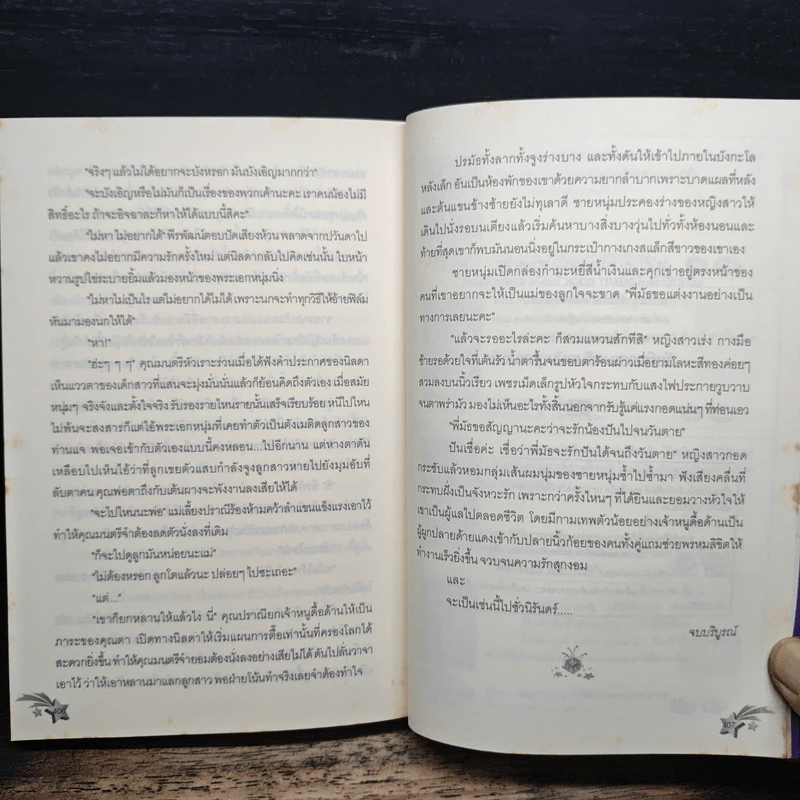 "จริงๆ แล้วไม่ได้อยากจะบังหรอก มันบังเอิญมากกว่า"
"จะบังเอิญหรือไม่มันก็เป็นเรื่องของพวกเค้านะคะ เราคนน้องไม่มี
สิทธิ์อะไร ถ้าจะอิจฉาละก็หาให้ได้แบบนี้สิคะ"
"ไม่หา ไม่อยากได้" พีรพัฒน์ตอบปัดเสียงห้วน พลาดจากปวันดาไป
แล้วเขาคงไม่อยากมีความรักครั้งใหม่ แต่นิลดากลับไปคิดเช่นนั้น ใบหน้า
หวานรูปไข่ระบายยิ้มแล้วมองหน้าของพระเอกหนุ่มนิ่ง
"ไม่หาไม่เป็นไร แต่ไม่อยากได้ไม่ได้ เพราะนกจะทำทุกวิธีให้อ้ายฟิล์ม
หันมามองนกให้ได้"
"หา!"
"ฮ่ะๆ ๆ ๆ" คุณมนตรีหัวเราะร่วนเมื่อได้ฟังคำประกาศของนิลดา
เห็นแววตาของเด็กสาวที่แสนจะมุ่งมั่นนั่นแล้วก็ย้อนคิดถึงตัวเอง เมื่อสมัย
หนุ่มๆ จริงจังและตั้งใจจริง รับรองรายไหนรายนั้นเสร็จเรียบร้อย หนีไปไหน
ไม่พ้นจะสงสารก็แต่ไอ้พระเอกหนุ่มที่เคยทำตัวเป็นตังเมติดลูกสาวของ
ท่านแจ พอเจอเข้ากับตัวเองแบบนี้คงหลอน...ไปอีกนาน แต่หางตาดัน
เหลือบไปเห็นไอ้ว่าที่ลูกเขยตัวแสบกำลังจูงลูกสาวหายไปยังมุมอับที่
ลับตาคน คุณพ่อตาถึงกับเต้นผางจะพังงานลงเสียให้ได้
"จะไปไหนนะพ่อ" แม่เลี้ยงปราณีร้องห้ามคว้าลำแขนแข็งแรงเอาไว้
ทำให้คุณมนตรีจำต้องลดตัวนั่งลงที่เดิม
"ก็จะไปดูลูกมันหน่อยนะแม่"
"ไม่ต้องหรอก ลูกโตแล้วนะ ปล่อยๆ ไปซะเถอะ"
"แต่..."
"เขาก็ยกหลานให้แล้วไง นี่" คุณปราณียกเจ้าหนูดื้อด้านให้เป็น
ภาระของคุณตา เปิดทางนิลดาให้เริ่มแผนการตื๊อเท่านั้นที่ครองโลกได้
สะดวกยิ่งขึ้น ทำให้คุณมนตรีจำยอมต้องนั่งลงอย่างเสียไม่ได้ ดันไปลั่นวาจา
เอาไว้ ว่าให้เอาหลานมาแลกลูกสาว พอฝ่ายโน้นทำจริงเลยจำต้องทำใจ
406
ปรมัธทั้งลากทั้งจูงร่างบาง และทั้งดันให้เข้าไปภายในบังกะโล
หลังเล็ก อันเป็นห้องพักของเขาด้วยความยากลำบากเพราะบาดแผลที่หลัง
และต้นแขนข้างซ้ายยังไม่ทุเลาดี ชายหนุ่มประคองร่างของหญิงสาวให้
เดินไปนั่งรอบนเตียงแล้วเริ่มค้นหาบางสิ่งบางวุ่นไปทั่วทั้งห้องนอนและ
ท้ายที่สุดเขาก็พบมันนอนนิ่งอยู่ในกระเป๋ากางเกงสแล็กสีขาวของเขาเอง
ชายหนุ่มเปิดกล่องกำมะหยี่สีน้ำเงินและคุกเข่าอยู่ตรงหน้าของ
คนที่เขาอยากจะให้เป็นแม่ของลูกใจจะขาด "พี่มัธขอแต่งงานอย่างเป็น
ทางการเลยนะคะ"
"แล้วจะรออะไรล่ะคะ ก็สวมแหวนสักทีสิ" หญิงสาวเร่ง กางมือ
ซ้ายรอด้วยใจที่เต้นรัว น้ำตารื้นจนขอบตาร้อนผ่าวเมื่อยามโลหะสีทองค่อยๆ
สวมลงบนนิ้วเรียว เพชรเม็ดเล็กรูปหัวใจกระทบกับแสงไฟประกายวูบวาบ
จนตาพร่ามัว มองไม่เห็นอะไรทั้งสิ้นนอกจากรับรู้แค่แรงกอดแน่นๆ ที่ท่อนเอว
"พี่มัธขอสัญญานะคะว่าจะรักน้องปันไปจนวันตาย"
"ปันเชื่อค่ะ เชื่อว่าพี่มัธจะรักปันได้จนถึงวันตาย" หญิงสาวกอด
กระชับแล้วหอมกลุ่มเส้นผมนุ่มของชายหนุ่มซ้ำไปซ้ำมา ฟังเสียงคลื่นที่
กระทบฝั่งเป็นจังหวะรัก เพราะกว่าครั้งไหนๆ ที่ได้ยินและยอมวางหัวใจให้
เขาเป็นผู้แลไปตลอดชีวิต โดยมีกามเทพตัวน้อยอย่างเจ้าหนูดื้อด้านเป็น
ผู้ผูกปลายด้ายแดงเข้ากับปลายนิ้วก้อยของคนทั้งคู่แถมช่วยพรหมลิขิตให้
ทำงานเร็วยิ่งขึ้น จวบจนความรักสุกงอม
และ
จะเป็นเช่นนี้ไปชั่วนิรันดร์.....
จบบริบูรณ์
407